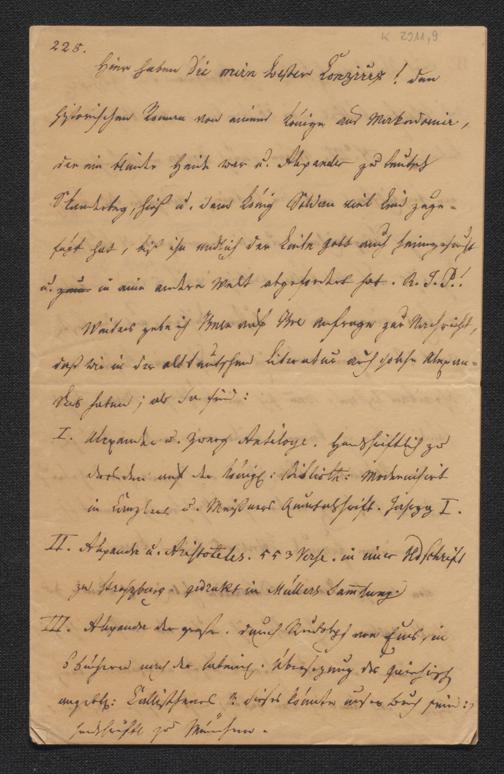 225.
K 2911,9
Hier haben Sie mein bester Conzives! den
historischen Roman von einem Könige aus Merkedonier,
der ein blinder Heide war u. Alexander zu deutsch
Skanderbeg, hieß u. dem König Soldan viel Leid zuge-
fügt hat, bis ihn endlich der liebe Gott auch heimgesucht
u. in eine andere Welt abgefordert hat. R. I. P.!
Weiters gebe ich Ihnen auf Ihre Anfrage zur Nachricht,
daß wir in der altdeutschen Literatur auch solche Alexan-
der haben; als da sind:
I. Alexander u. Zwerg Antiloye. Handschriftlich zu
Dresden auf der königl: Biblioth: Modernisirt
in Canzlers u. Meißners Quartalschrift. Jahrg I.
II. Alexander u. Aristoteles. 553 Verse. in einer Hdschrift
zu Straßburg - gedrukt in Müllers Samlung
III. Alexander der große. durch Rudolph von Ems, in
6 Büchern nach der latein: Übersetzung des griechisch
angebl: Callisthenes ? dieses könnte unser Buch sein :)
handschriftl zu München.